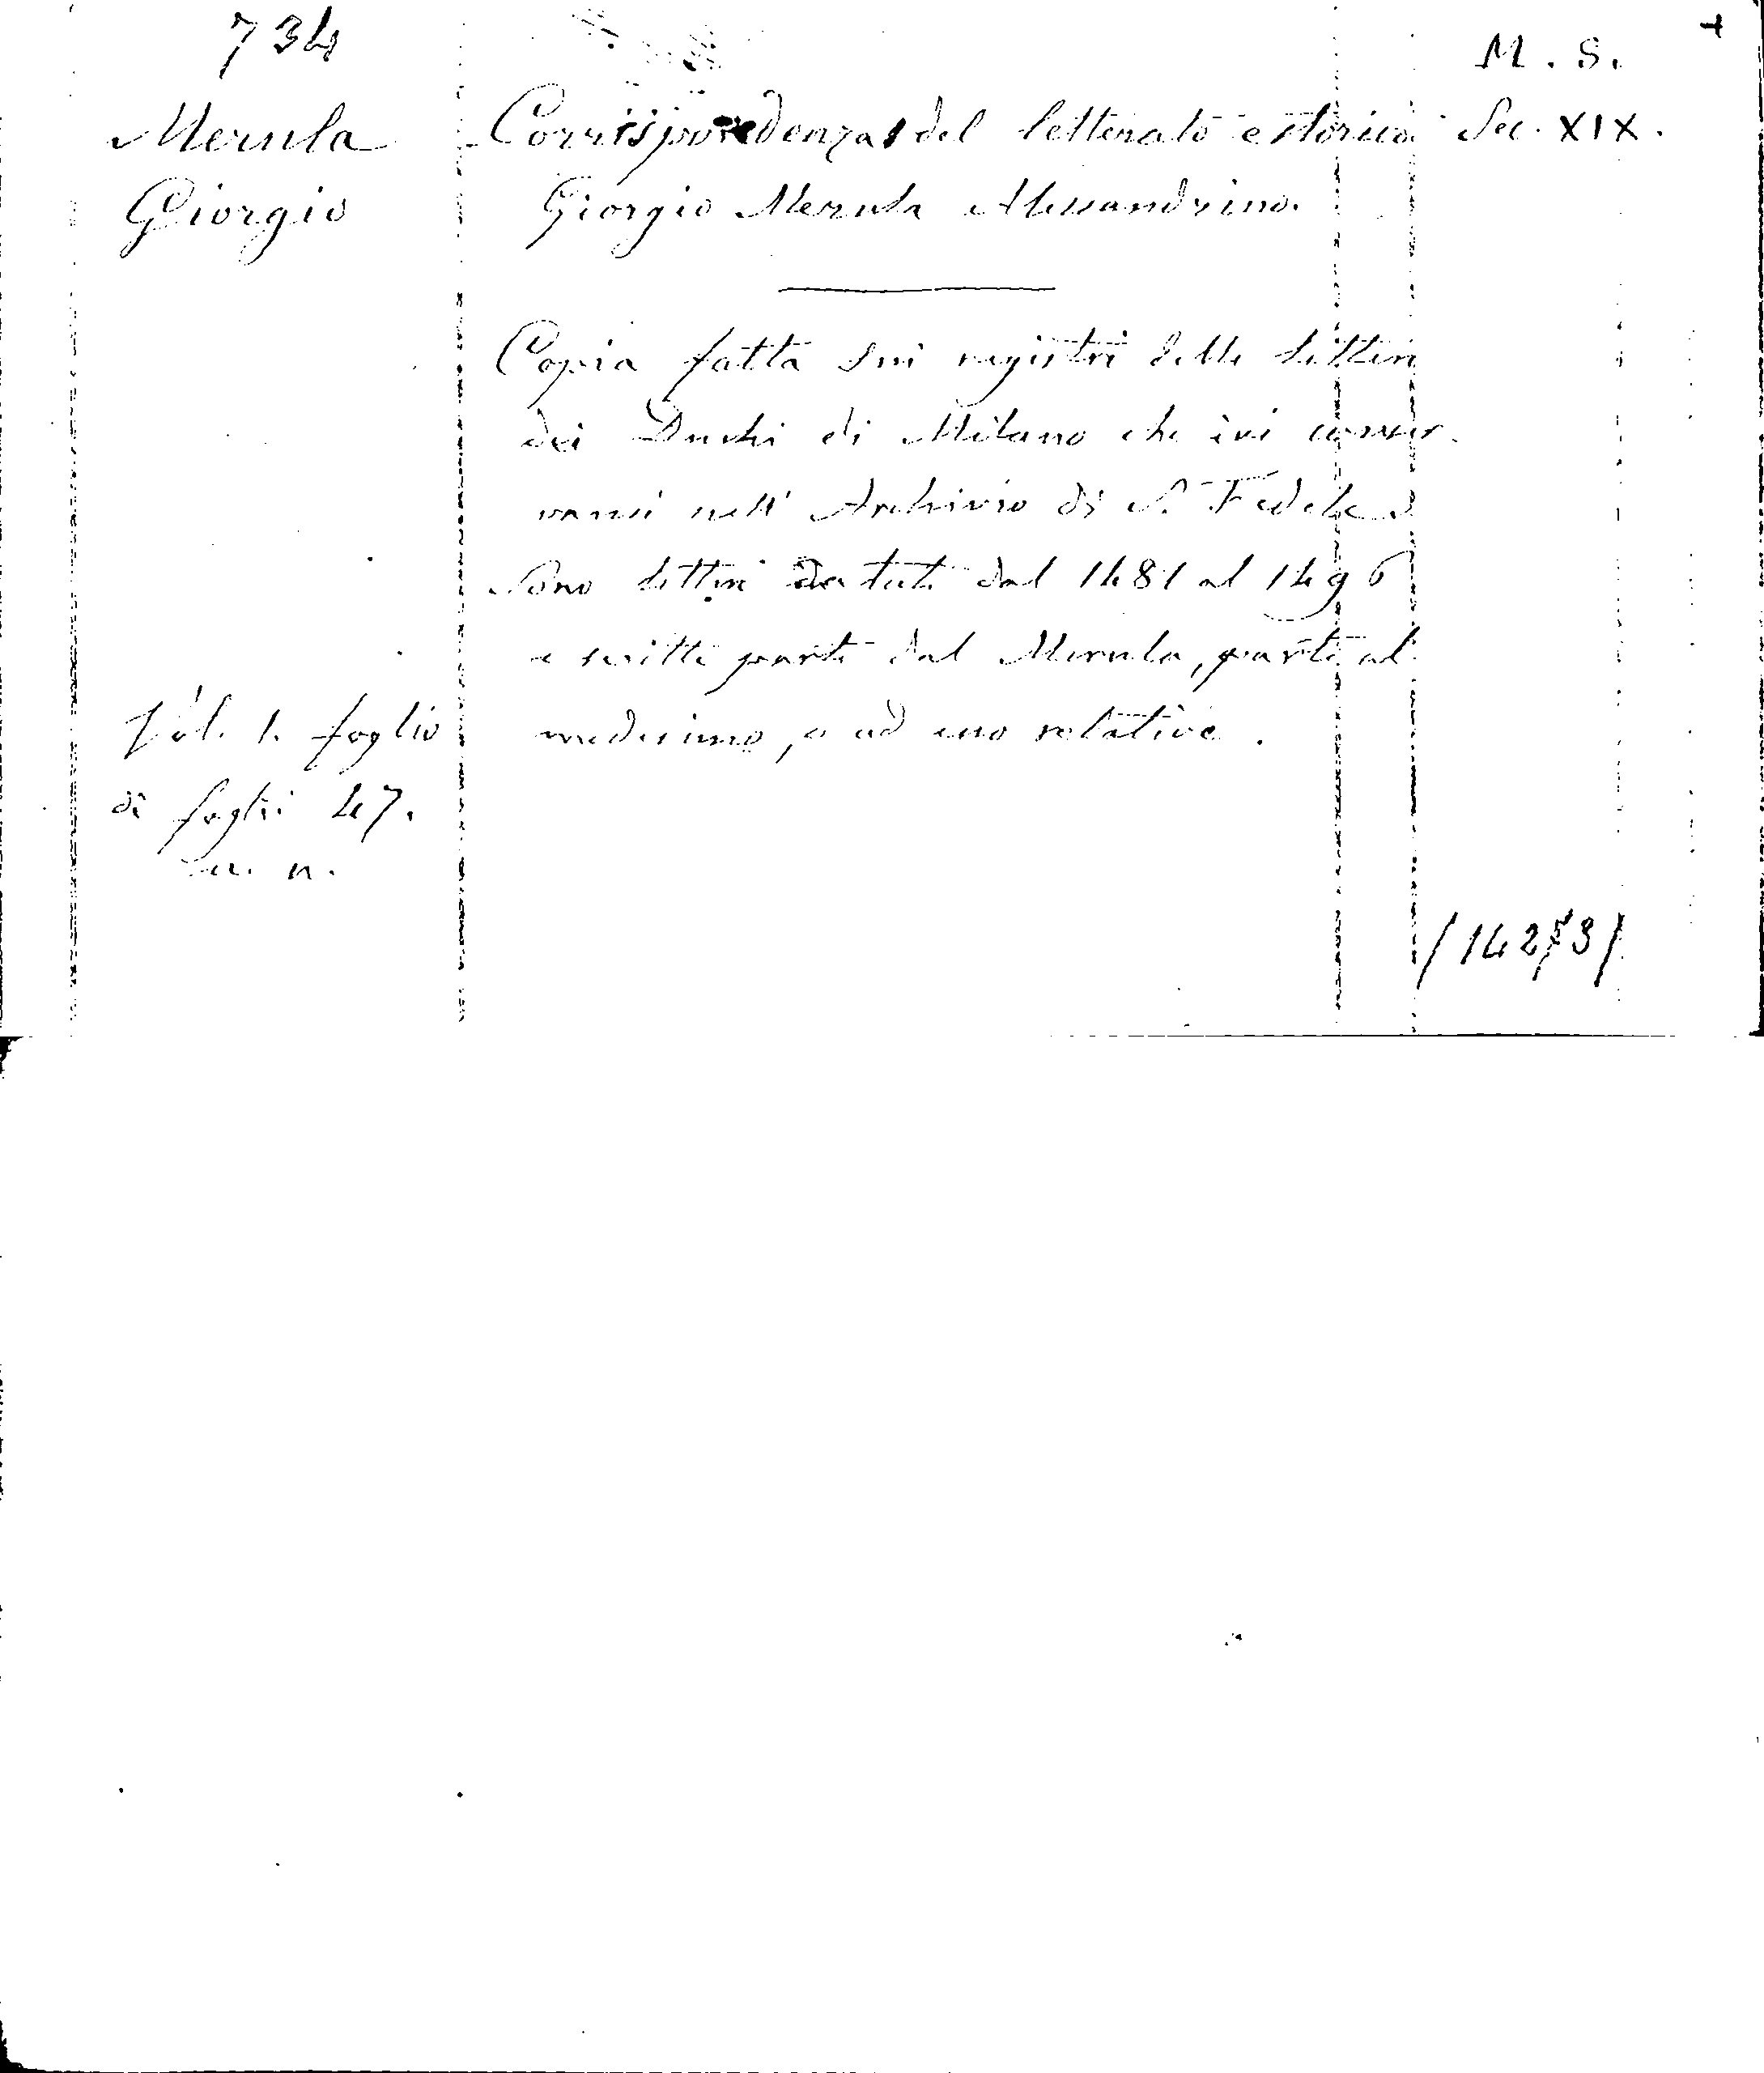 734
M. S.
Merula
Giorgio
Corrispondenza del letterato e storico
Giorgio Merula Alessandrino.
Sec. XIX.
Copia fatta sui registri delle lettere
dei Duchi di Milano che ivi conser-
vansi nell' Archivio di S. Fedele
Sono lettere datate dal 1481 al 1496
e scritte parte dal Merula, parte al
medesimo, o ad esso relative.
Vol. 1. foglio
di fogli 47.
n.